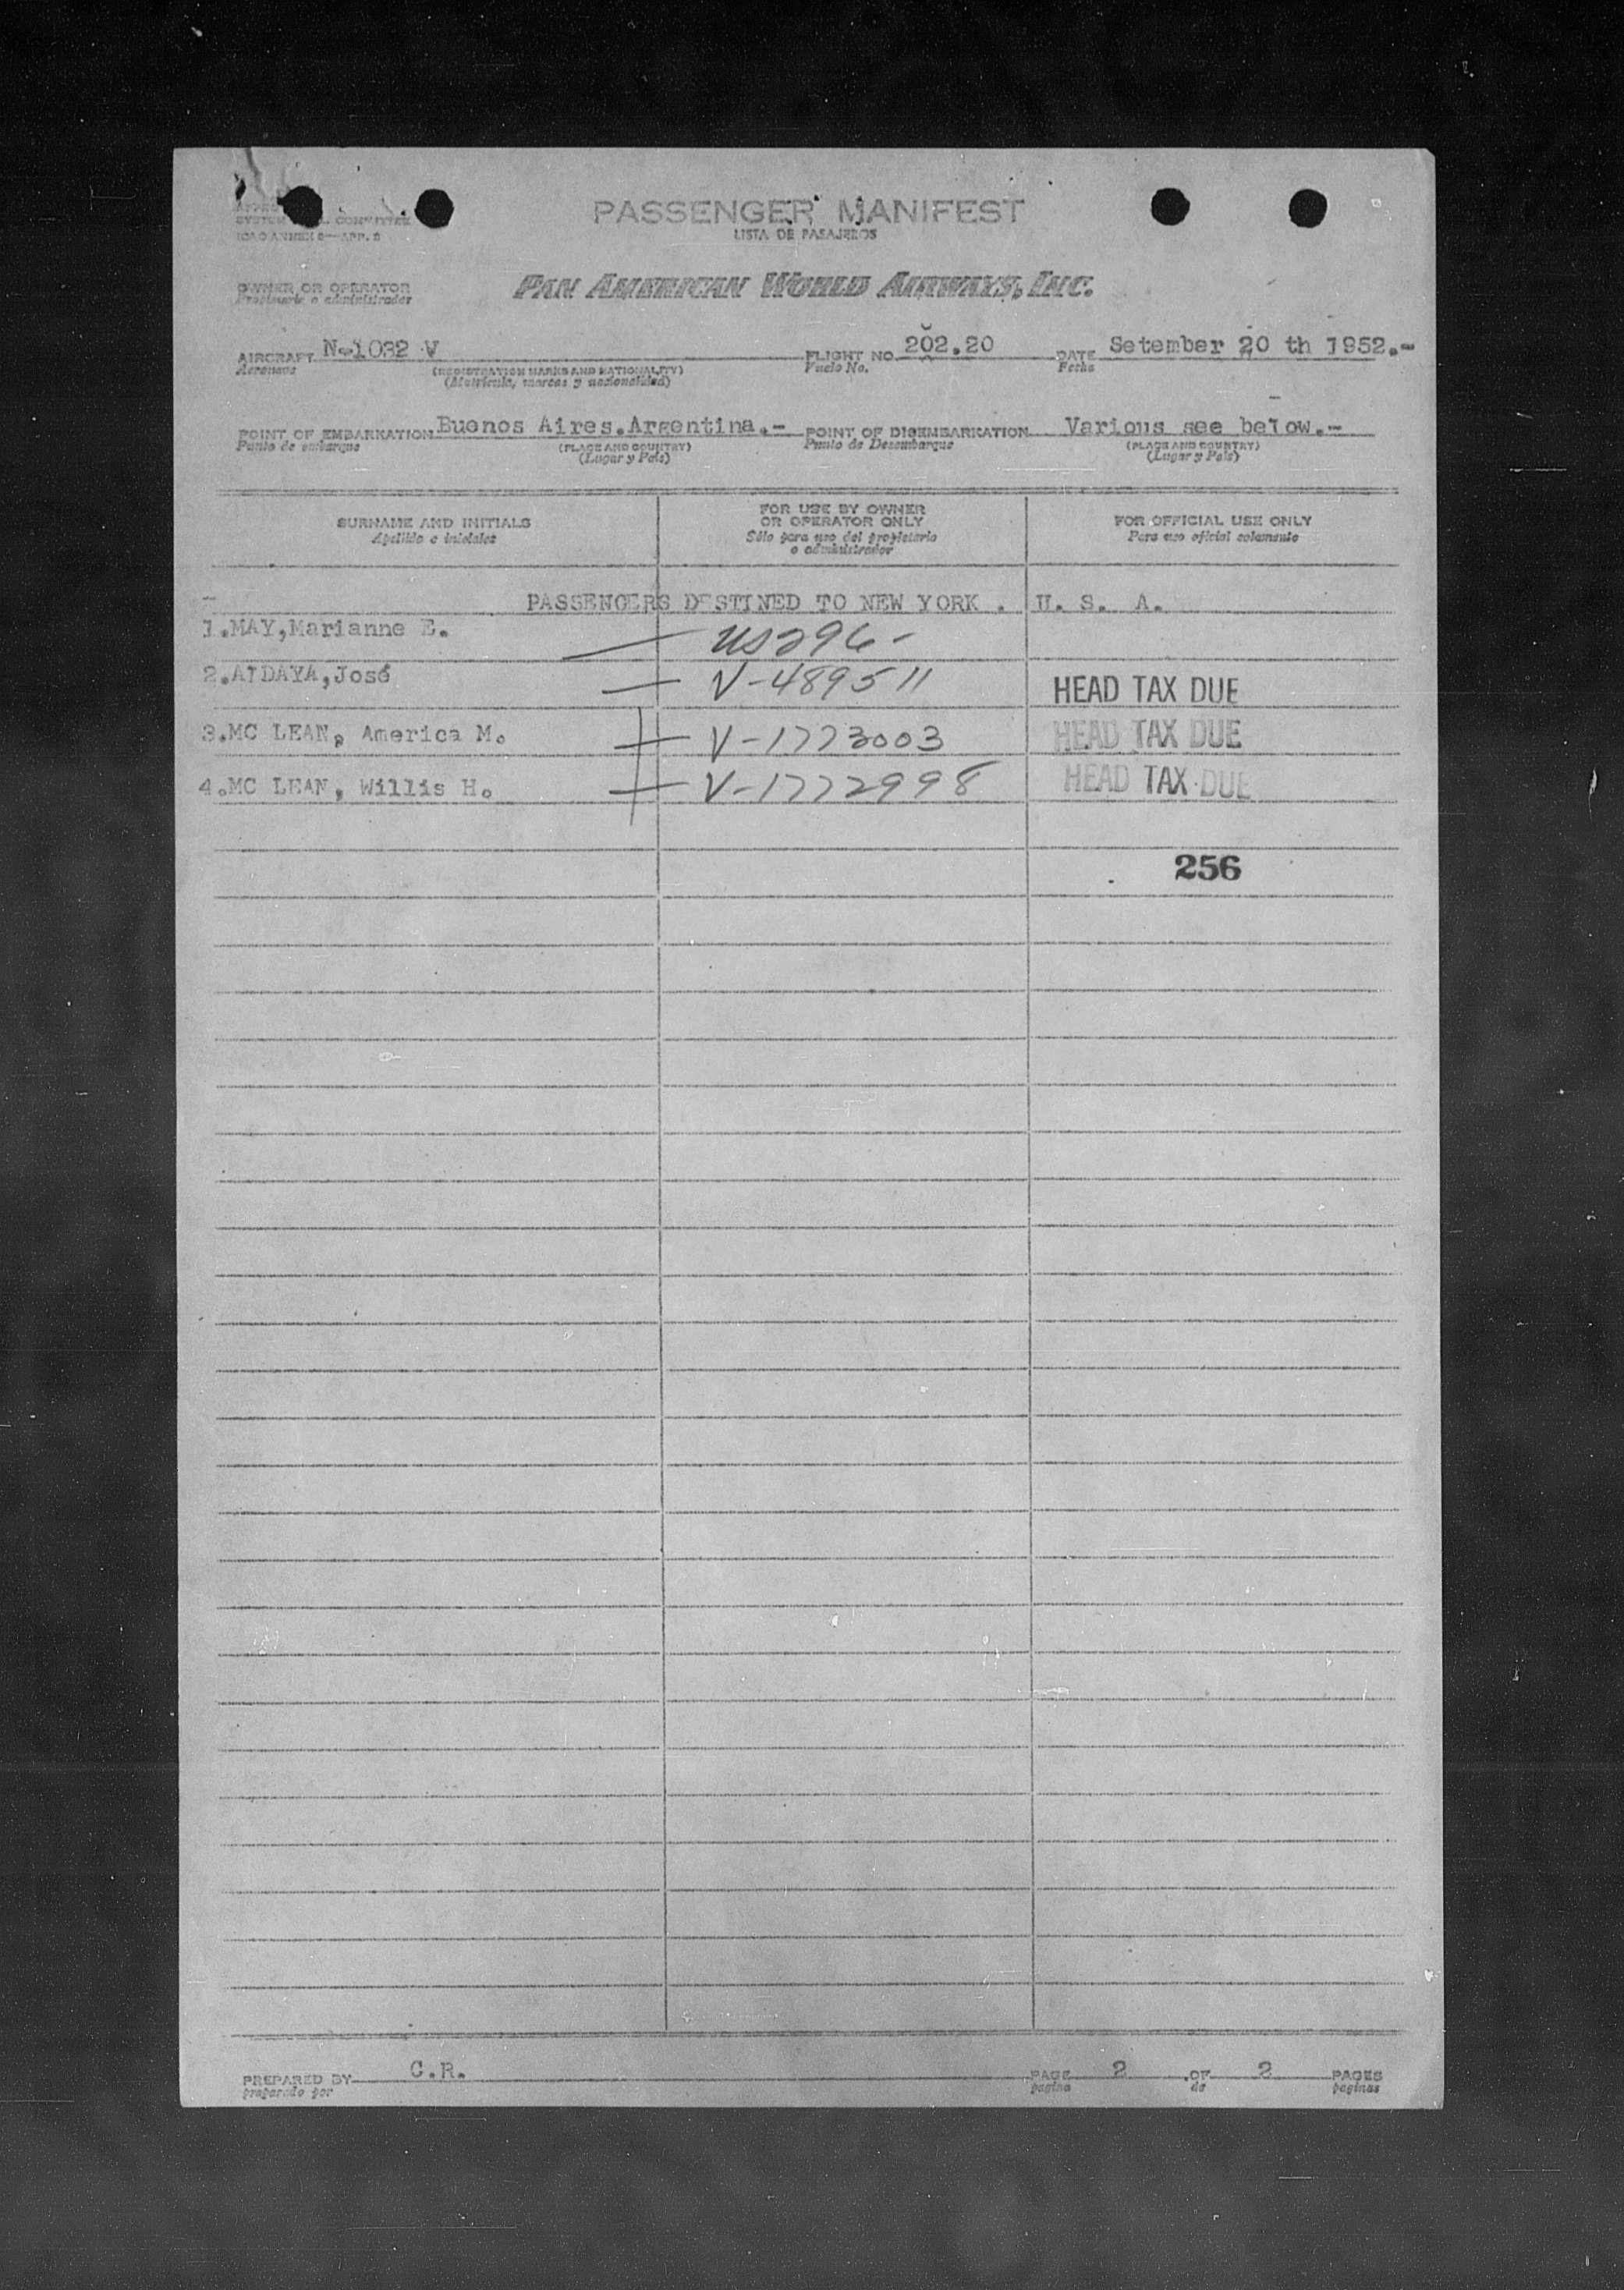 PASSENGER MANIFEST
LISTA DE PASAJEROS
SYSTEM COMMITTEE
ICAO ANNEX 9—APP. 5
OWNER OR OPERATOR PAN AMERICAN WORLD AIRWAYS, INC.
Propietario o administrador
AIRCRAFT N-1032 V FLIGHT NO. 202.20 DATE Setember 20 th 1952.-
Aeronave (REGISTRATION MARKS AND NATIONALITY) Vuelo No. Fecha
(Matrícula, marcas y nacionalidad)
POINT OF EMBARKATION Buenos Aires.Argentina.- POINT OF DISEMBARKATION Various see below.-
Punto de embarque (PLACE AND COUNTRY) Punto de Desembarque (PLACE AND COUNTRY)
(Lugar y País) (Lugar y País)
SURNAME AND INITIALS FOR USE BY OWNER OR OPERATOR ONLY FOR OFFICIAL USE ONLY
Apellido e iniciales Sólo para uso del propietario o administrador Para uso oficial solamente
PASSENGERS DESTINED TO NEW YORK . U. S. A.
1.MAY,Marianne E. — US296-
2.AIDAYA,José — V-489511 HEAD TAX DUE
3.MC LEAN, America M. — V-1773003 HEAD TAX DUE
4.MC LEAN, Willis H. — V-1772998 HEAD TAX DUE
256
PREPARED BY C.R. PAGE 2 OF 2 PAGES
preparado por página de páginas